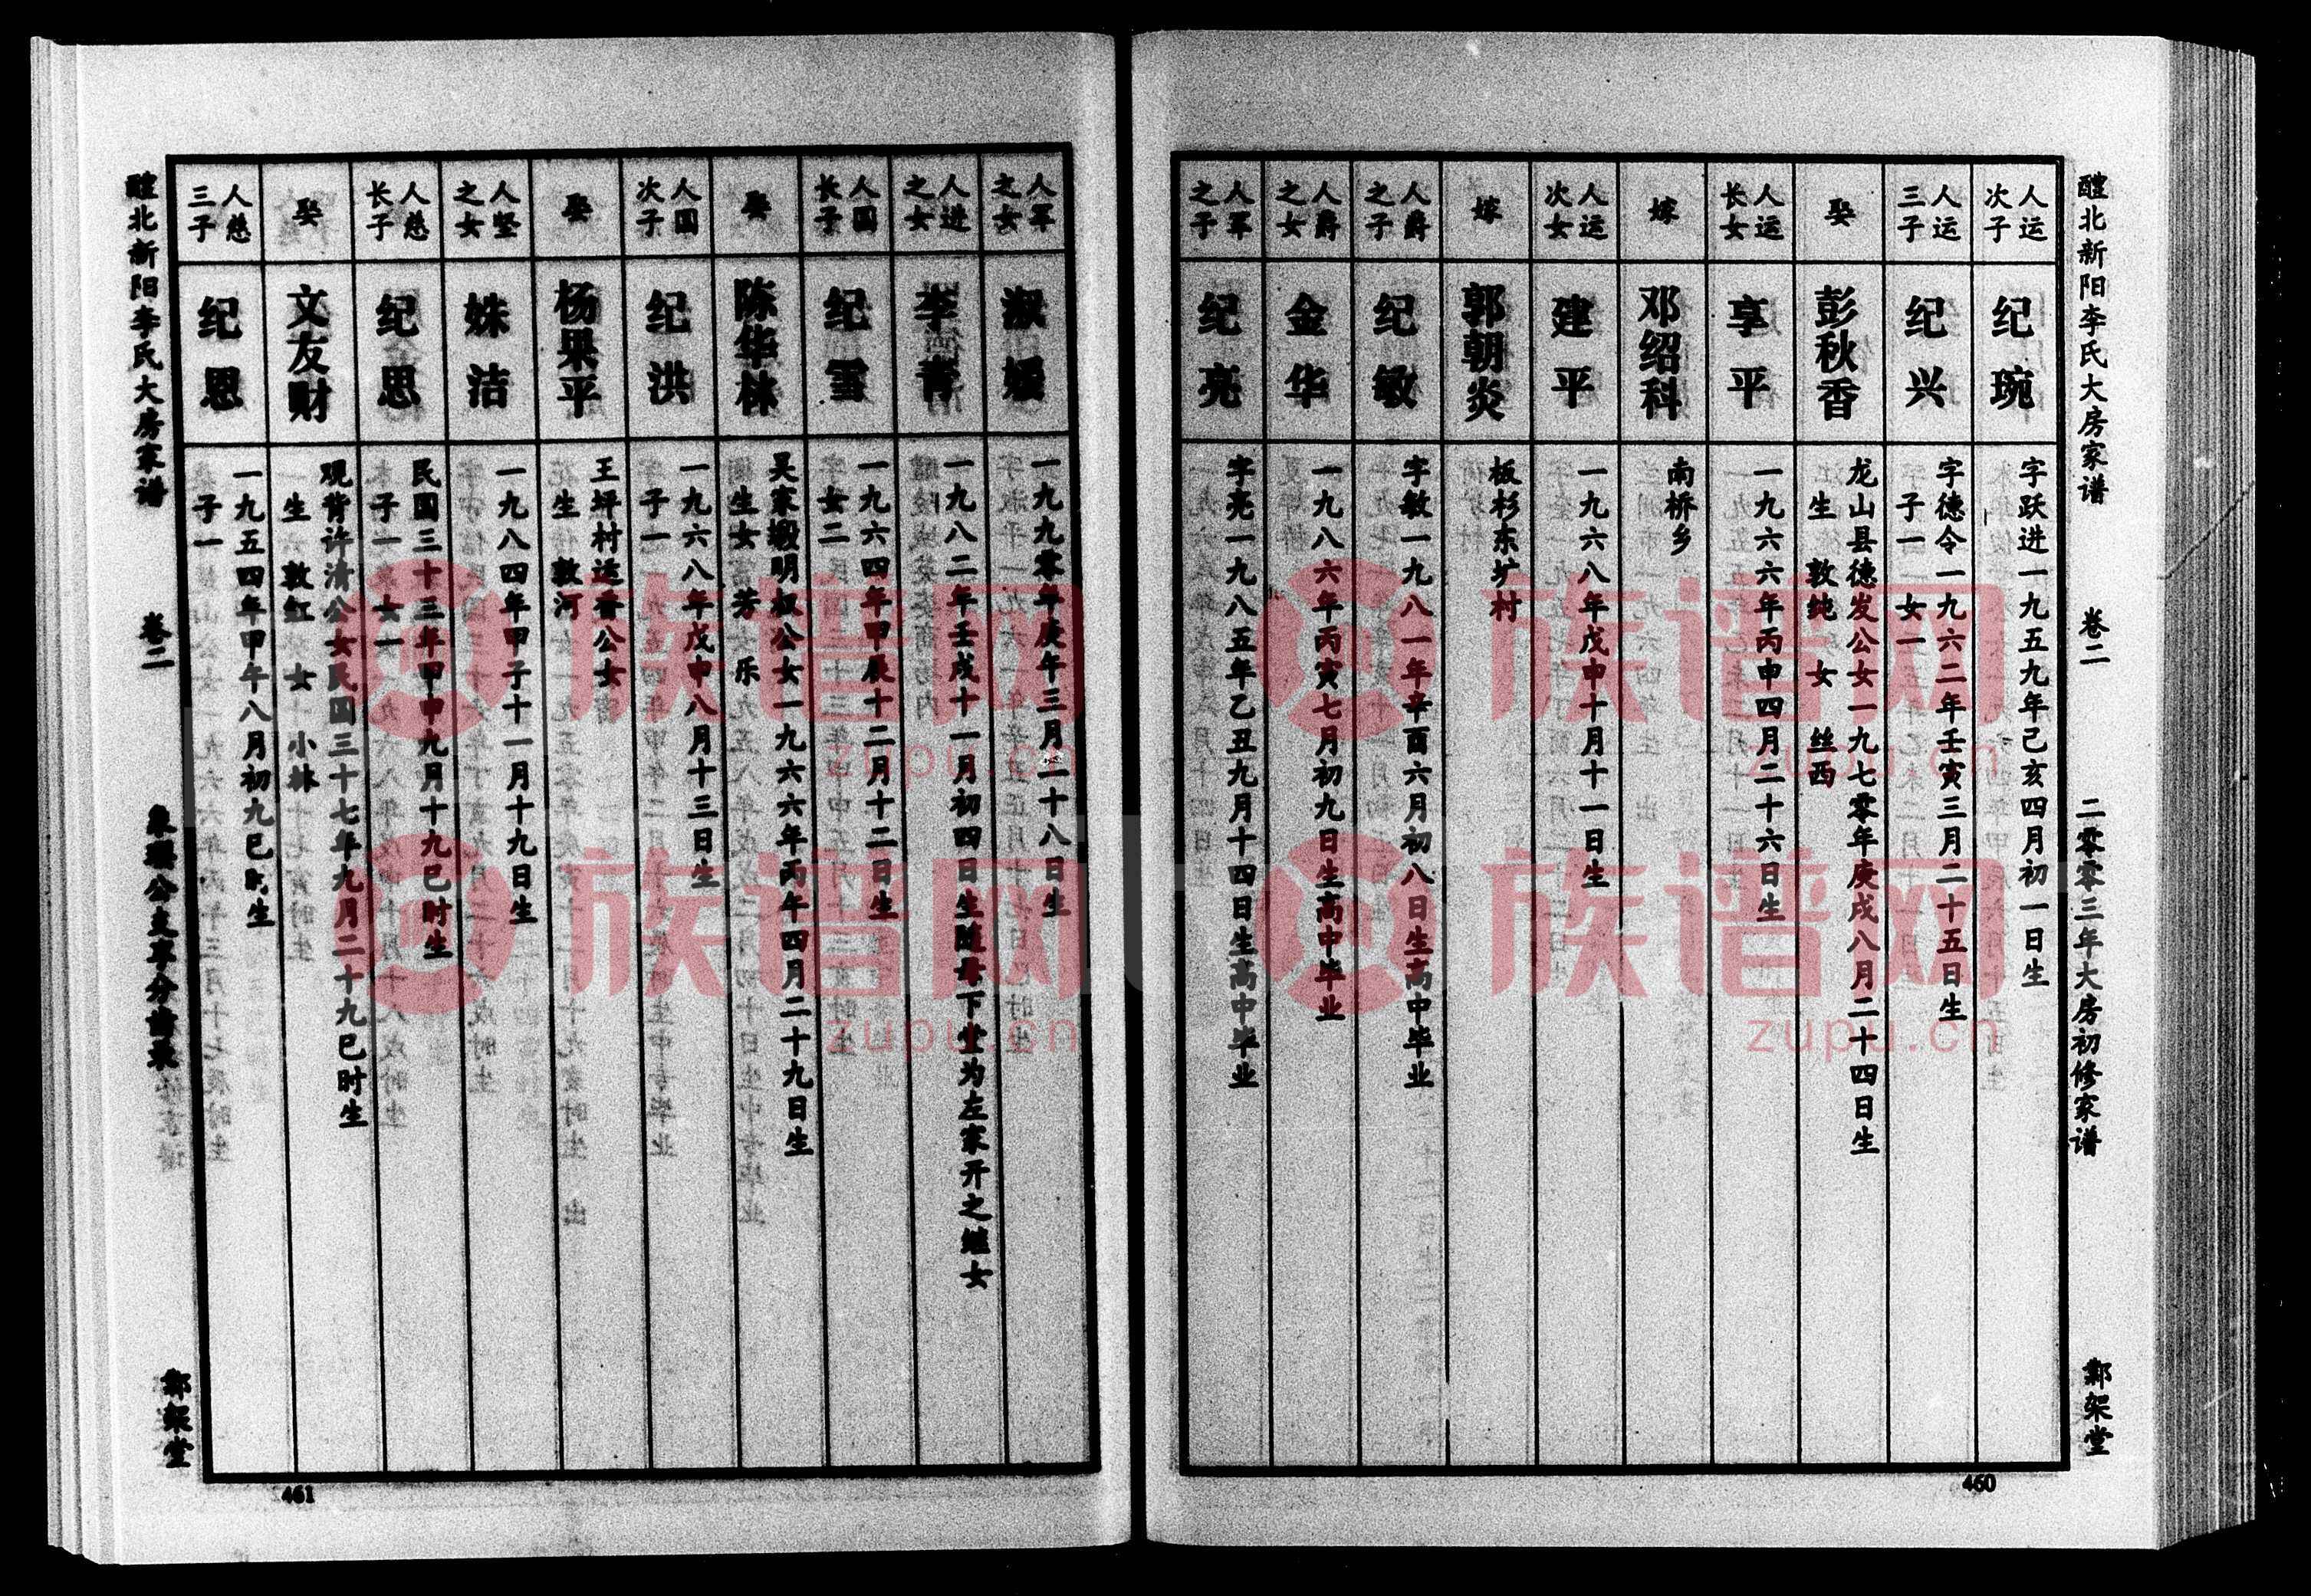 醴北新阳李氏大房家谱 卷二 二零零三年大房初修家谱 鄴架堂
人运次子 纪琬 字跃进一九五九年己亥四月初一日生
人运三子 纪兴 字德令一九六二年壬寅三月二十五日生
子一 女一
娶 彭秋香 龙山县德发公女一九七零年庚戌八月二十四日生
生 敦纯 女 丝西
人运长女 享平 一九六六年丙申四月二十六日生
嫁 邓绍科 南桥乡
人运次女 建平 一九六八年戊申十月十一日生
嫁 郭朝炎 板杉东圹村
人爵之子 纪敏 字敏一九八一年辛酉六月初八日生高中毕业
人爵之女 金华 一九八六年丙寅七月初九日生高中毕业
人军之子 纪亮 字亮一九八五年乙丑九月十四日生高中毕业
460
人军之女 淑媛 一九九零年庚午三月二十八日生
人进之女 李青 一九八二年壬戌十一月初四日生随母下堂为左家开之继女
人国长子 纪雪 一九六四年甲辰十二月十二日生
女二
娶 陈华林 吴家塅明叔公女一九六六年丙午四月二十九日生
生女 富芳 乐
人国次子 纪洪 一九六八年戊申八月十三日生
子一
娶 杨果平 王坪村适香公女
生 敦河
人坚之女 姝洁 一九八四年甲子十一月十九日生
人慈长子 纪思 民国三十三年甲申九月十九巳时生
子一 女一
娶 文友财 观背许清公女民国三十七年九月二十九巳时生
生 敦红 女 小林
人慈三子 纪恩 一九五四年甲午八月初九巳时生
子一
醴北新阳李氏大房家谱 卷二 公支 分 录 鄴架堂
461
族谱网
zupu.cn
族谱网
zupu.cn
族谱网
zupu.cn
族谱网
zupu.cn